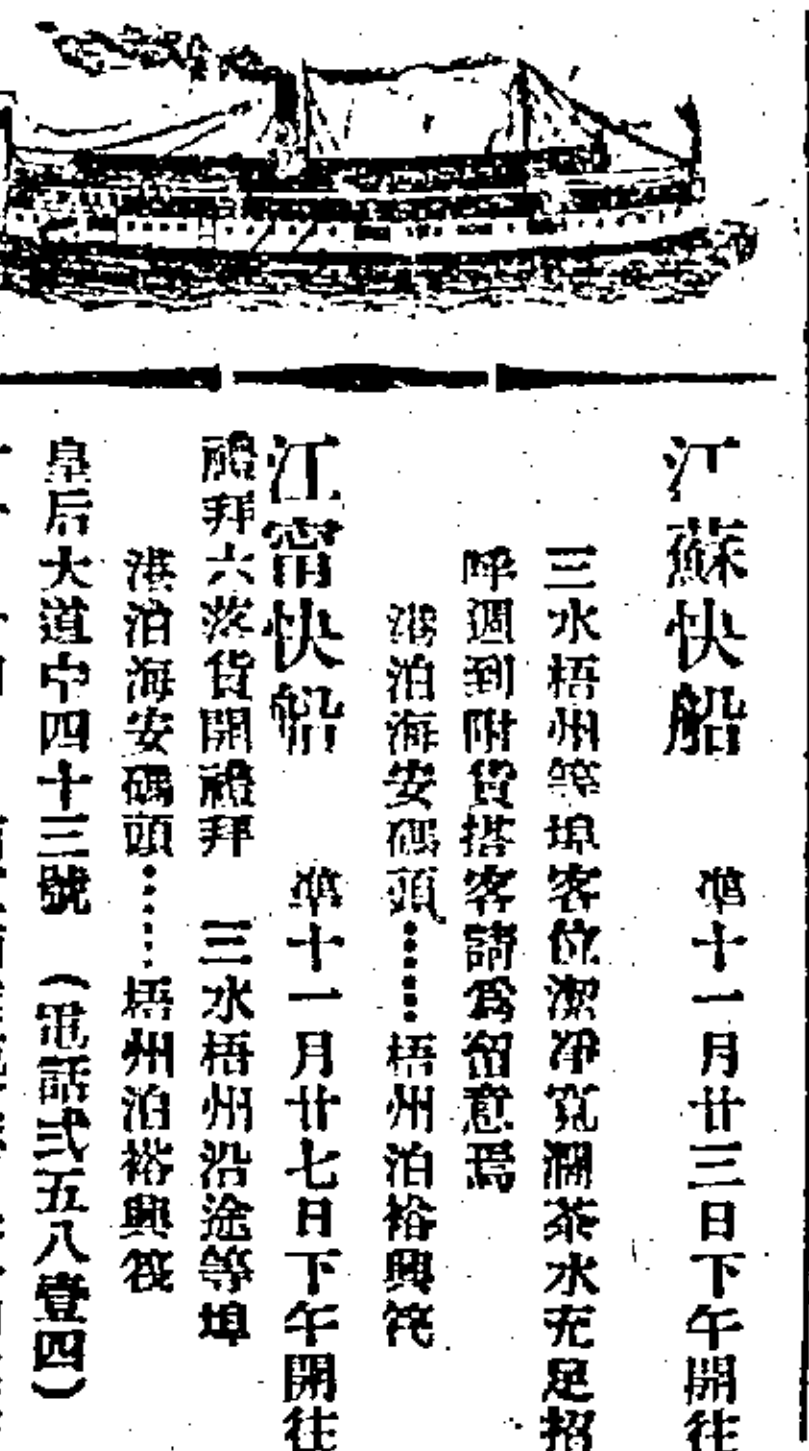 江蘇快船　準十一月廿三日下午開往
三水梧州等埠客位潔淨寬濶茶水充足招
呼週到附貨搭客請爲留意焉
港泊海安碼頭……梧州泊裕興筏
江甯快船　準十一月廿七日下午開往
禮拜六落貨開禮拜　三水梧州沿途等埠
港泊海安碼頭……梧州泊裕興筏
皇后大道中四十三號　（電話弍五八壹四）